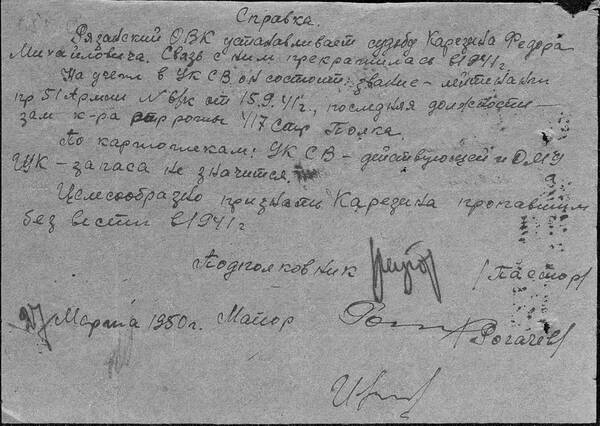 Справка.
Рязанский ОВК устанавливает судьбу Карезина Федора
Михайловича. Связь с ним прекратилась в 1941г.
На учете в УК СВ он состоит, звание – лейтенант
пр 51 Армии N в/к от 15.9.41г., последняя должность –
зам к-ра стр роты 417 Стр Полка.
По картотекам: УК СВ – действующей и ОМУ
ЦК – запаса не значится.
Целесообразно признать Карезина пропавшим
без вести в 1941г
Подполковник /Пастор/
27 Марта 1950г. Майор /Рогачев/